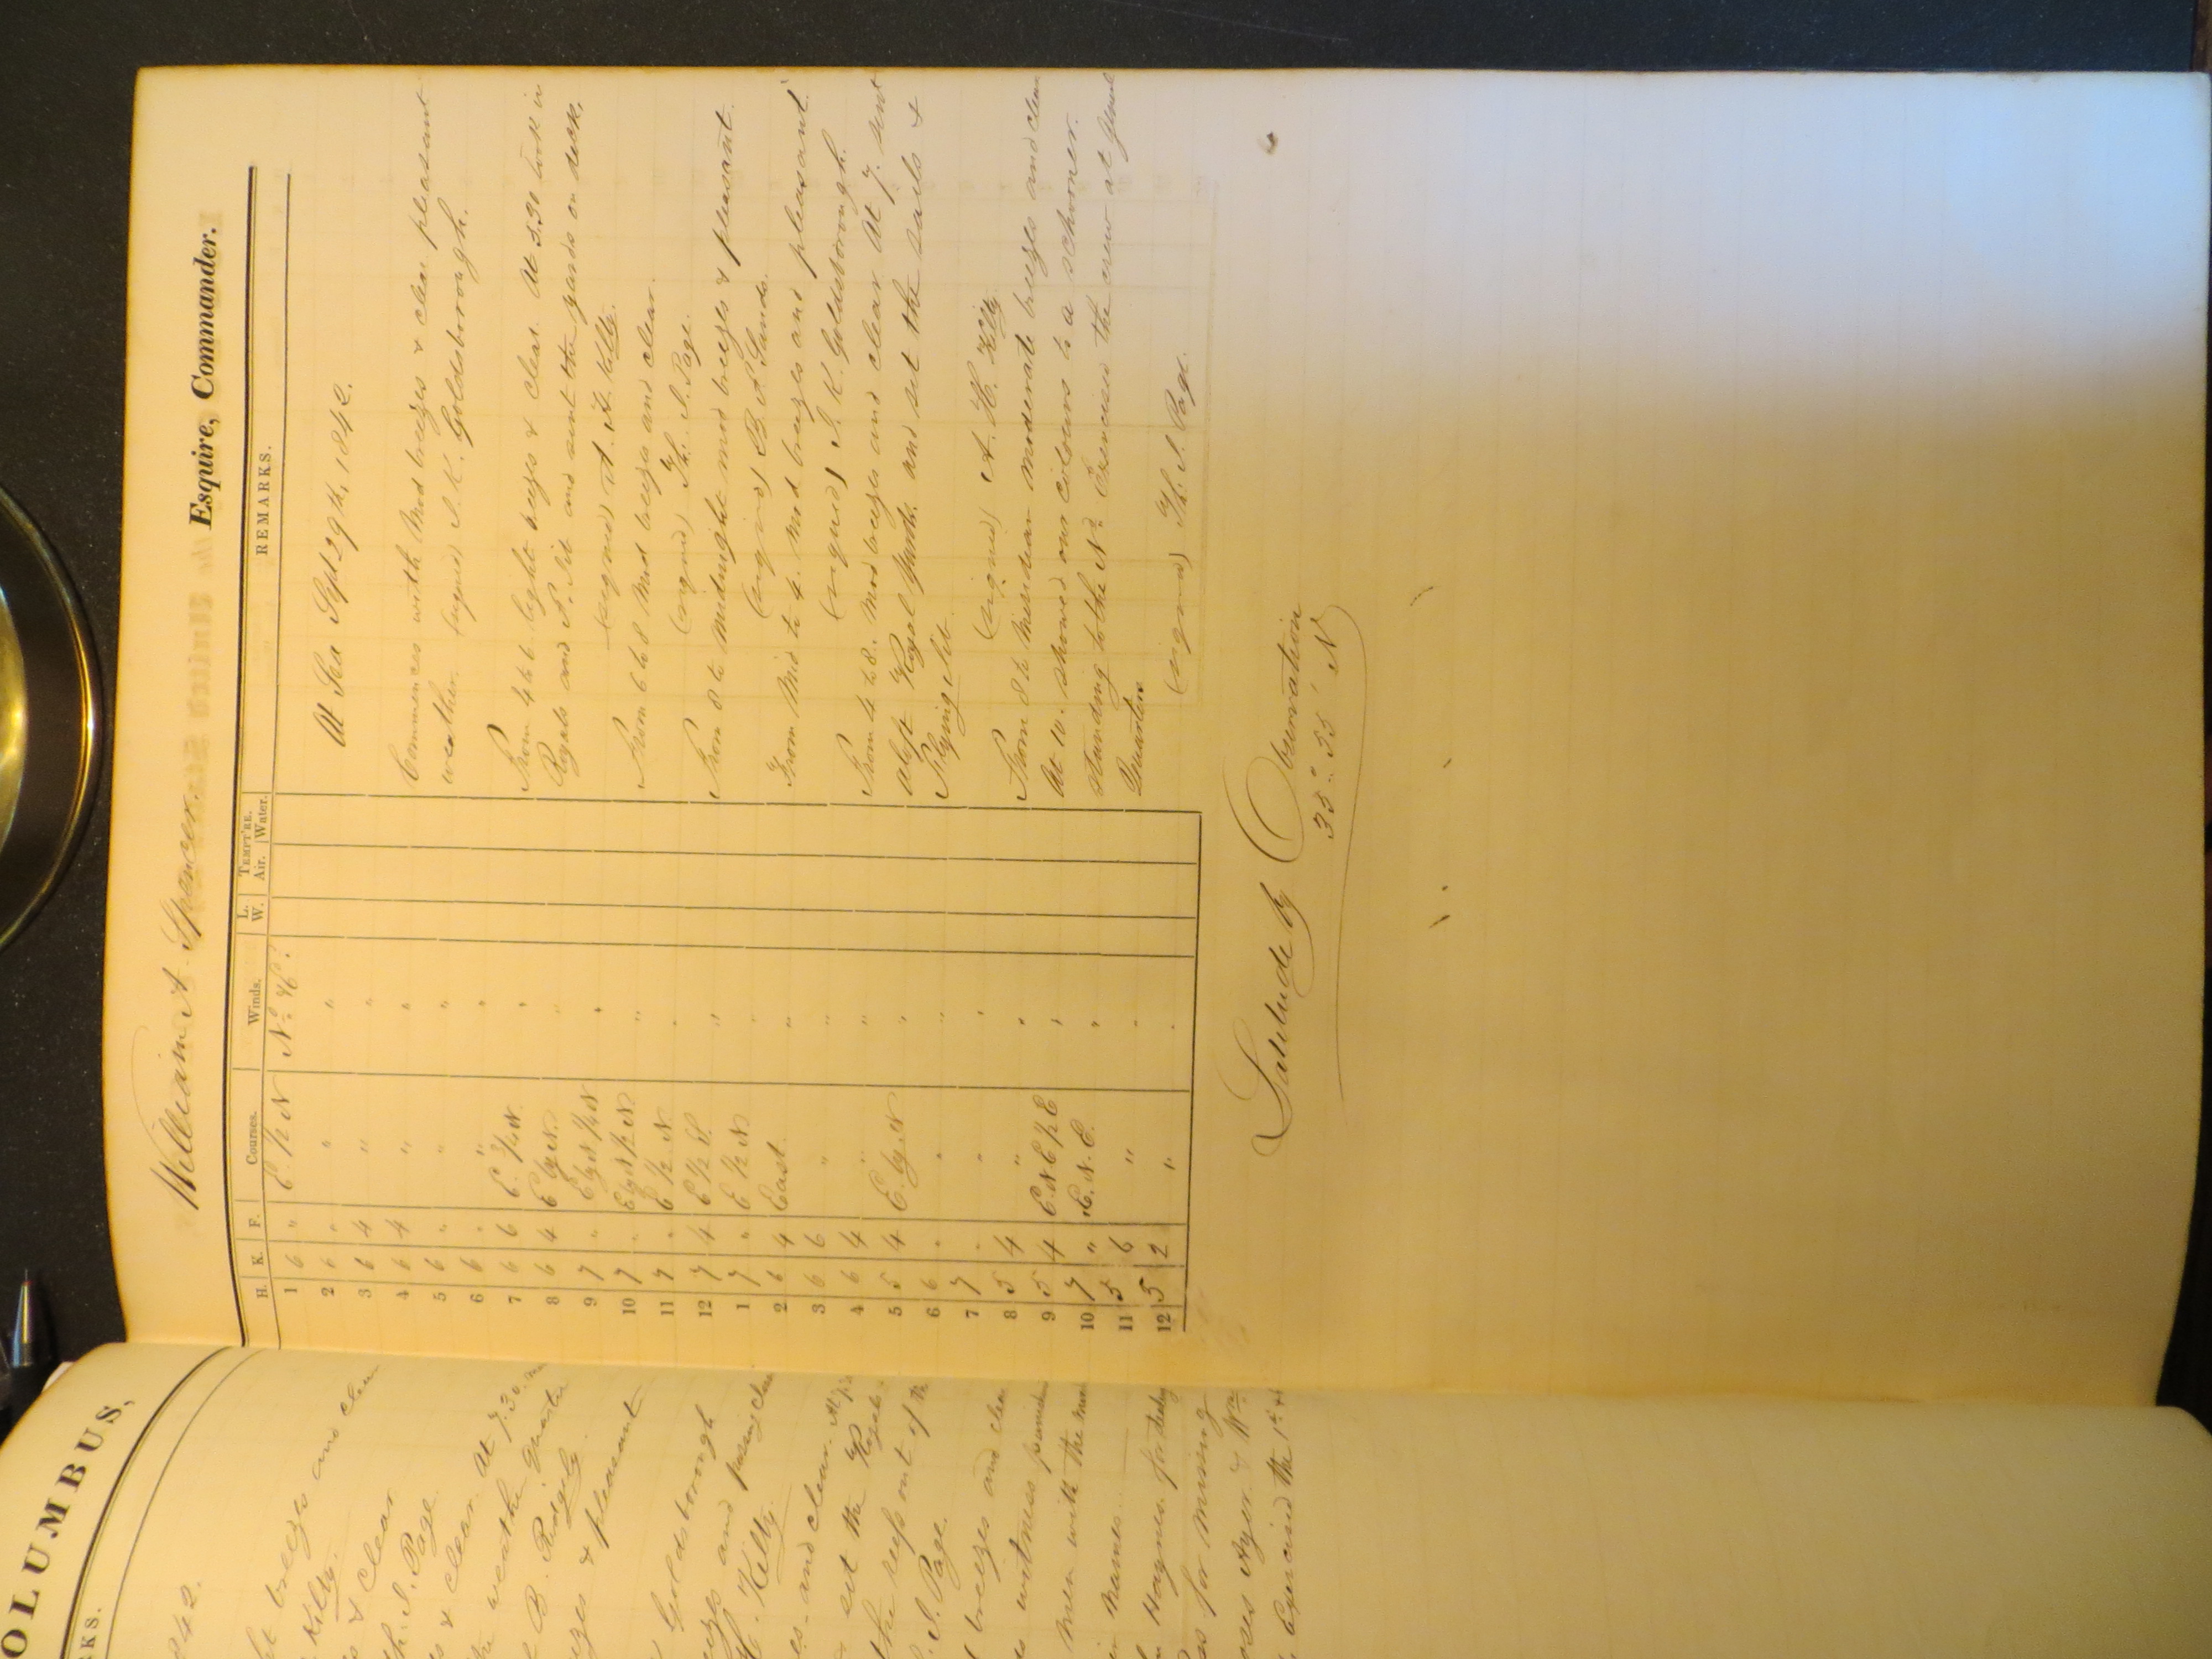 OLUMBUS,
KS.
842.
breezes and clear
Kilty.
& clear
Th. J. Page.
& clear. At 7.30
the weather quarter
B. Ridgely.
& pleasant
Goldsborough
and passing clouds
H. Kilty.
and clear.
set the Royals
the reefs out of the
J. Page.
breezes and clear
witness punishment
men with the
names
Haynes. for
for missing
Exercised the 1st &
William A. Spencer Esquire, Commander.
H. K. F. Courses. Winds. L. W. TEMPT'RE. Air. Water. REMARKS.
1 6 " E. 1/2 N N.d & E.
2 6 " " "
3 6 4 " "
4 6 4 " "
5 6 " " "
6 6 " " "
7 6 6 E. 3/4 N. "
8 6 4 E by N. "
9 7 " E by N 1/2 N "
10 7 " E by N 1/2 N "
11 7 " E 1/2 N. "
12 7 4 E 1/2 S. "
1 7 " E 1/2 N "
2 6 4 East. "
3 6 6 " "
4 6 4 " "
5 5 4 E. by N "
6 6 " " "
7 7 " " "
8 5 4 " "
9 5 4 E N E 1/2 E "
10 7 " E. N. E. "
11 5 6 " "
12 5 2 " "
At Sea Sept 29th, 1842.
Commences with Mod breezes & clear pleasant
weather. (signed) J. K. Goldsborough.
From 4 to 6. light breezes & clear. At 5.30 took in
Royals and F. Jib and sent the yards on deck,
(signed) A. H. Kilty.
From 6 to 8 Mod breezes and clear.
(signed) Th. J. Page.
From 8 to Midnight mod breezes & pleasant.
(signed) B. F. Sands.
From Mid to 4. Mod breezes and pleasant
(signed) J. K. Goldsborough.
From 4 to 8. Mod breezes and clear. At 7. sent
aloft Royal yards. and set the sails &
Flying Jib.
(signed) A. H. Kilty
From 8 to Meridian moderate breezes and clear
At 10. showed our colours to a schooner.
standing to the N.d Exercised the crew at General
Quarters
(signed) Th. J. Page.
Latitude by Observation
35° 55' N